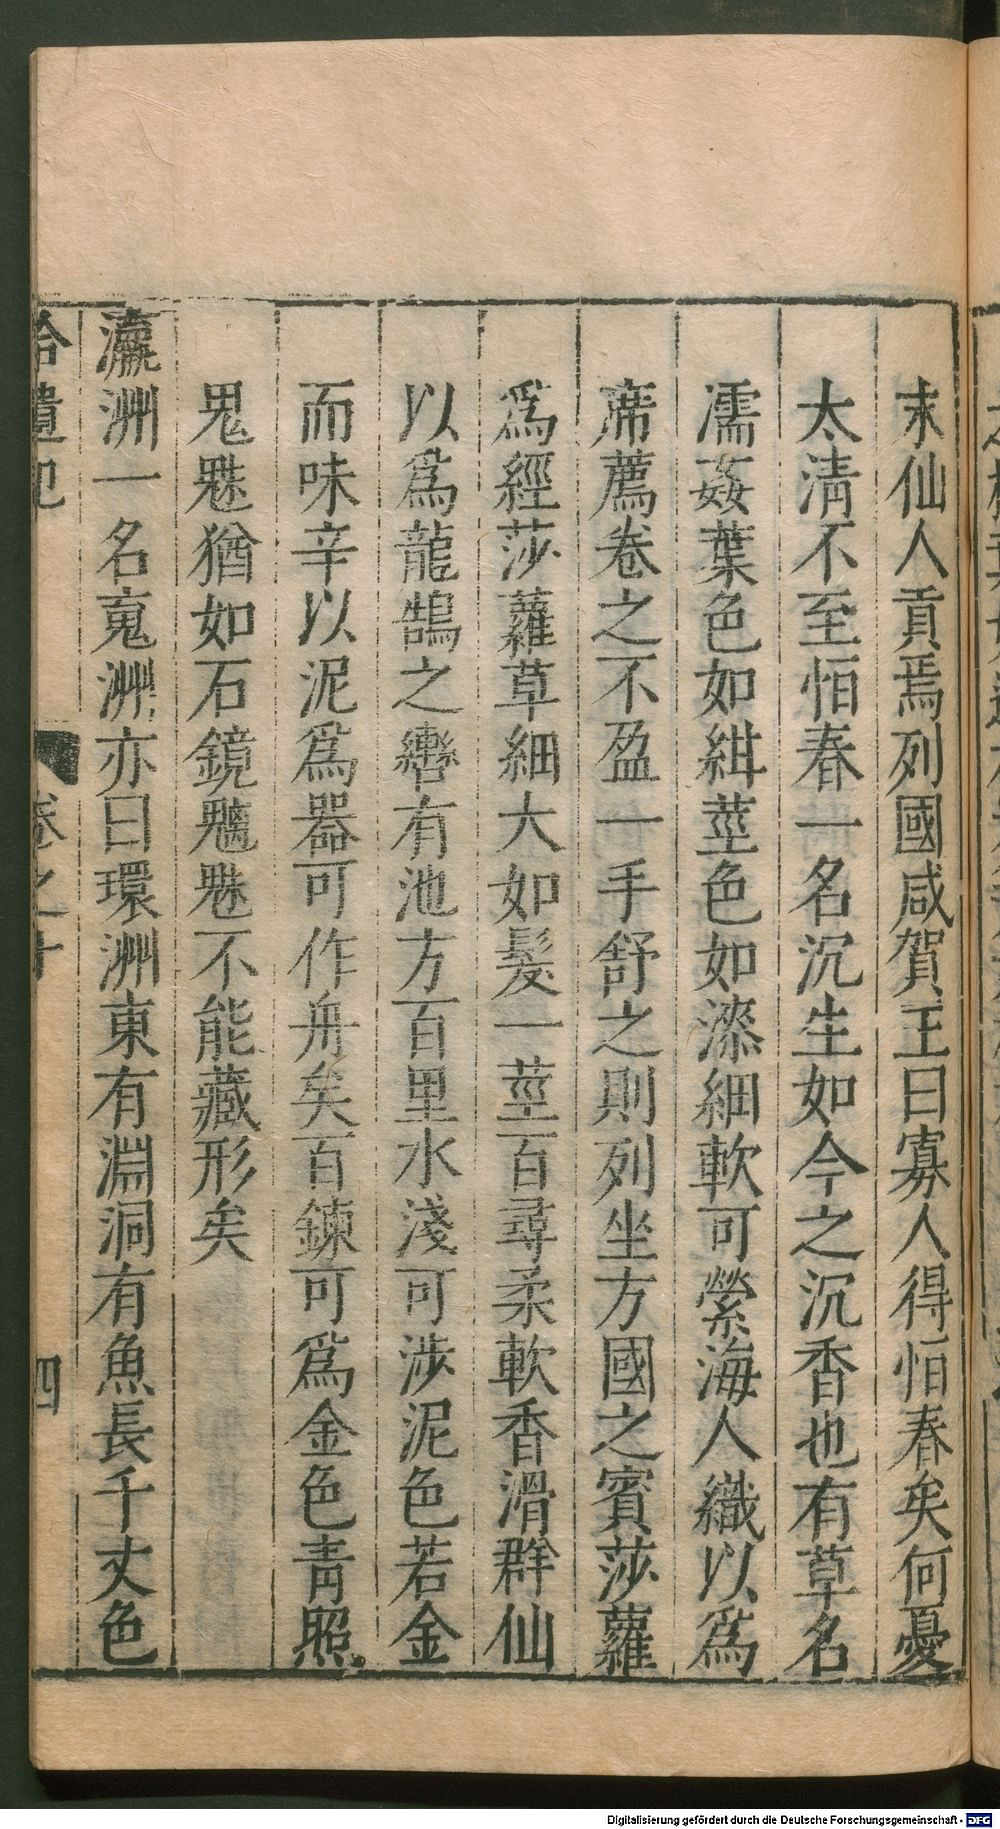 末仙人貢焉列國咸賀王曰寡人得恒春矣何憂
太清不至恒春一名沉生如今之沉香也有草名
濡姦葉色如紺莖色如漆細軟可縈海人織以爲
席薦卷之不盈一手舒之則列坐方國之賓莎蘿
爲經莎蘿草細大如髮一莖百尋柔軟香滑群仙
以爲龍鵠之轡有池方百里水淺可涉泥色若金
而味辛以泥爲器可作舟矣百鍊可爲金色青照
鬼魅猶如石鏡魑魅不能藏形矣
瀛洲一名䰟洲亦曰環洲東有淵洞有魚長千丈色
拾遺記 卷之十 四
Digitalisierung gefördert durch die Deutsche Forschungsgemeinschaft - DFG